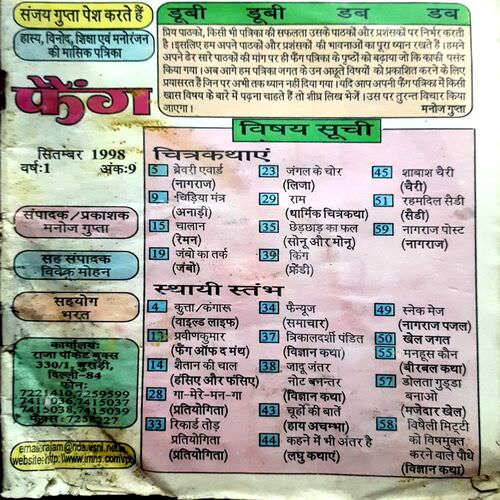 संजय गुप्ता पेश करते हैं
हास्य, विनोद, शिक्षा एवं मनोरंजन
की मासिक पत्रिका
फैंग
सितम्बर 1998
वर्ष:1 अंक:9
संपादक/प्रकाशक
मनोज गुप्ता
सह संपादक
विवेक मोहन
सहयोग
भरत
कार्यालय
राजा पॉकेट बुक्स
330/1, बुराड़ी,
दिल्ली-84
फोन:
7221410,7259599
7411036,7415037
7415038,7415039
7258227
डूबी डूबी डब डब
प्रिय पाठको, किसी भी पत्रिका की सफलता उसके पाठकों और प्रशंसकों पर निर्भर करती
है।इसलिए हम अपने पाठकों और प्रशंसकों की भावनाओं का पूरा ध्यान रखते हैं।हमने
अपने ढेर सारे पाठकों की मांग पर ही फैंग पत्रिका के पृष्ठों को बढ़ाया जो कि काफी पसंद
किया गया।अब आगे हम पत्रिका जगत के उन अछूते विषयों को प्रकाशित करने के लिए
प्रयासरत हैं जिन पर अभी तक ध्यान नहीं दिया गया।यदि आप अपनी फैंग पत्रिका में किसी
खास विषय के बारे में पढ़ना चाहते हैं तो शीघ्र लिख भेजें।उस पर तुरन्त विचार किया
जाएगा। मनोज गुप्ता
विषय सूची
चित्रकथाएं
5 ब्रेवरी एवार्ड
(नागराज)
9 चिड़िया मंत्र
(अनाड़ी)
15 चालान
(रेमन)
19 जंबो का तर्क
(जंबो)
23 जंगल के चोर
(लिजा)
29 राम
(धार्मिक चित्रकथा)
35 छेड़छाड़ का फल
(सोनू और मोनू)
39 किंग
(फ्रेंडी)
45 शाबाश चैरी
(चैरी)
51 रहमदिल सैडी
(सैडी)
59 नागराज पोस्ट
(नागराज)
स्थायी स्तंभ
4 कुत्ता/कंगारू
(वाइल्ड लाइफ)
13 प्रवीणकुमार
(फैंग ऑफ द मंथ)
14 शैतान की चाल
(हंसिए और फंसिए)
28 गा-मेरे-मन-गा
(प्रतियोगिता)
33 रिकार्ड तोड़
प्रतियोगिता
(प्रतियोगिता)
34 फैन्यूज
(समाचार)
37 त्रिकालदर्शी पंडित
(विज्ञान कथा)
38 जादू जंतर
नोट बनन्तर
(विज्ञान कथा)
43 चूहों की बातें
(हाय अचम्भा)
44 कहने में भी अंतर है
(लघु कथाएं)
49 स्नेक मेज
(नागराज पजल)
50 खेल जगत
55 मनहूस कौन
(बीरबल कथा)
57 डोलता गुड्डा
बनाओ
(मजेदार खेल)
58 विषैली मिट्टी
को विषमुक्त
करने वाले पौधे
(विज्ञान कथा)